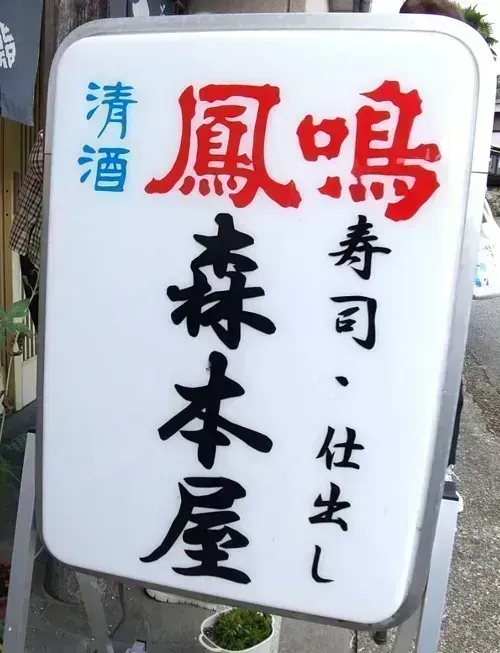 清酒
鳳鳴
寿司・仕出し
森本屋